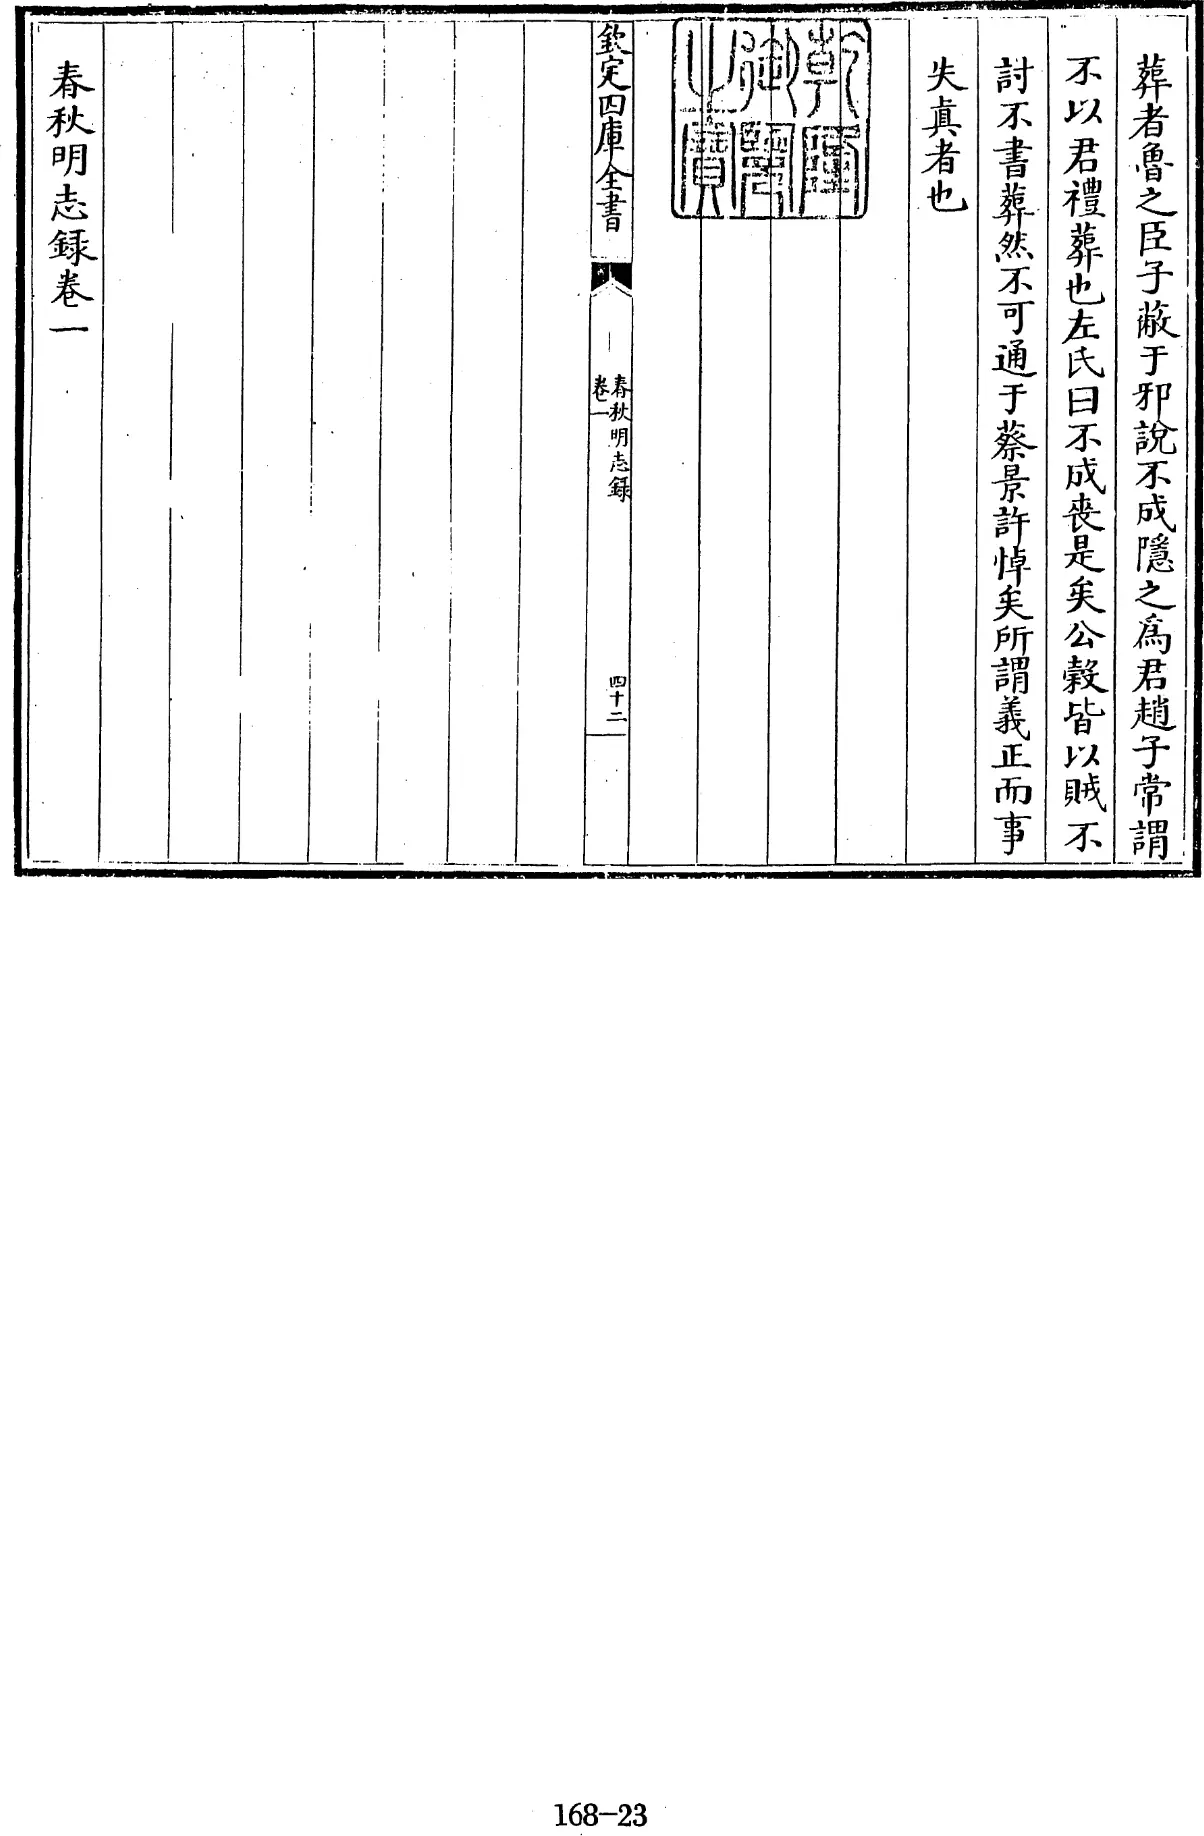 葬者魯之臣子蔽于邪說不成隱之為君趙子常謂
不以君禮葬也左氏曰不成喪是矣公穀皆以賊不
討不書葬然不可通于蔡景許悼矣所謂義正而事
失真者也
乾隆
御覽
之寶
欽定四庫全書
春秋明志録
卷一
四十二
春秋明志録卷一
168-23